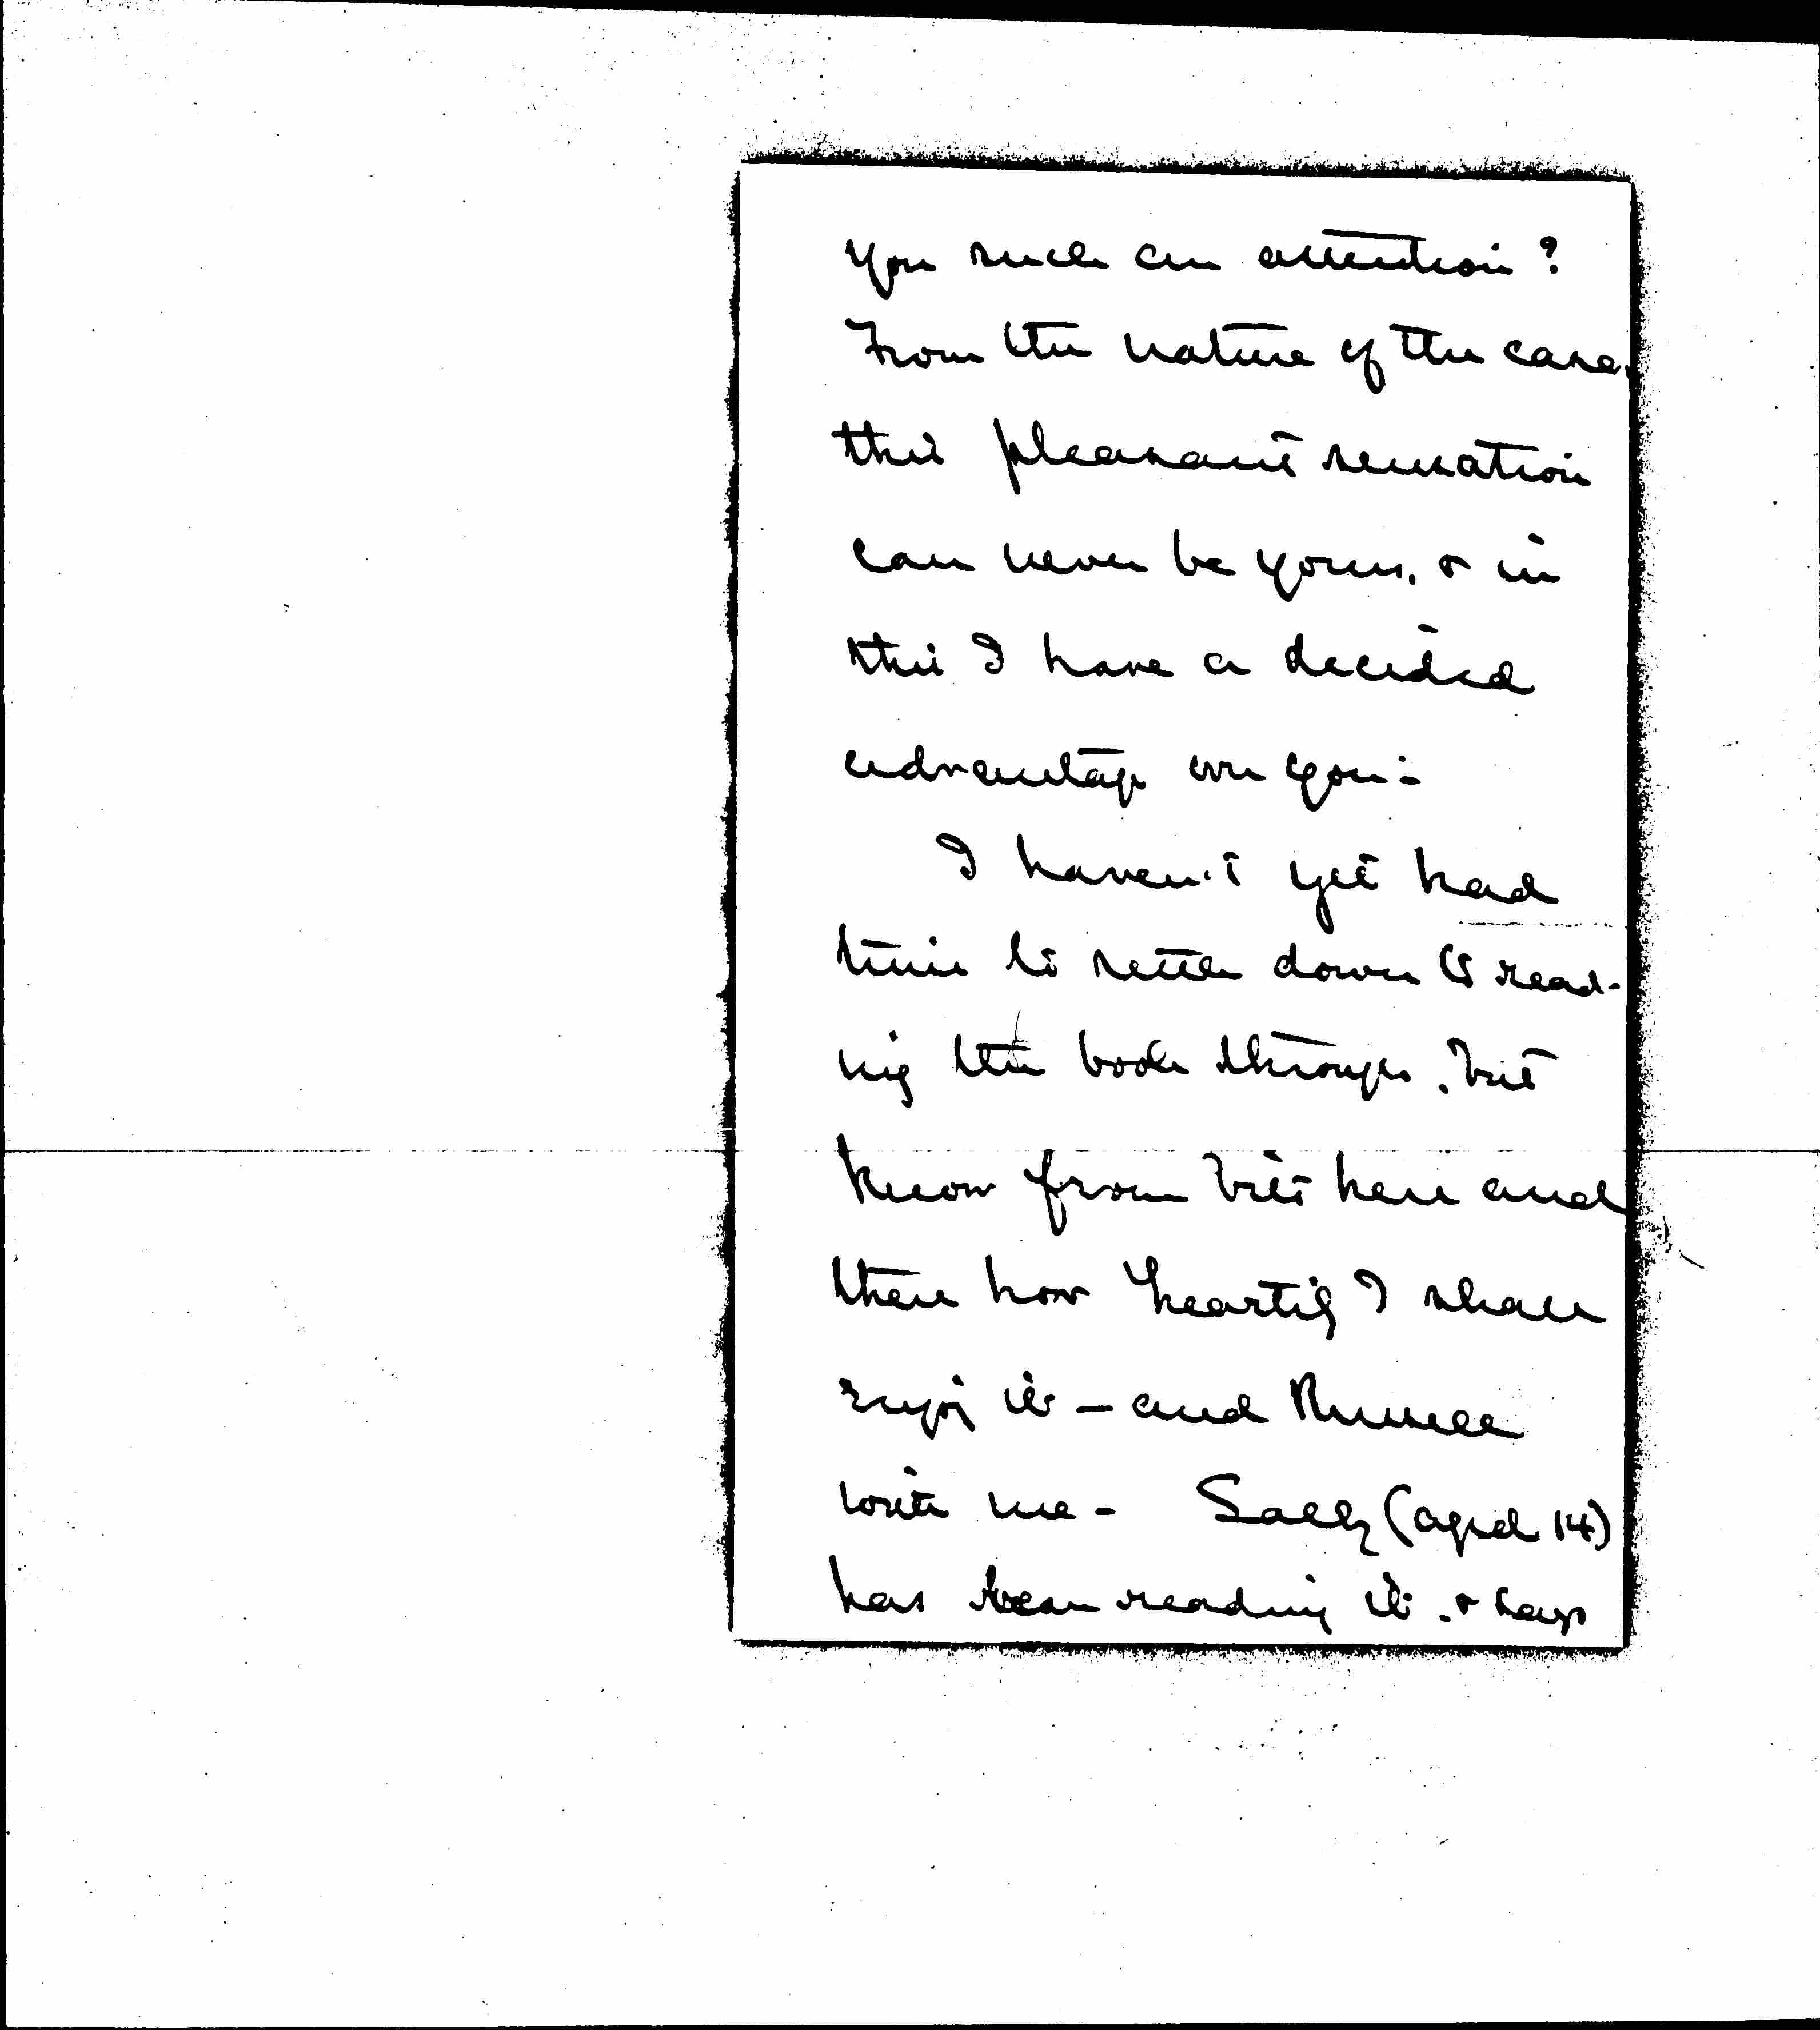 you such an attention?
From the nature of the case,
this pleasant sensation
can never be yours, & in
this I have a decided
advantage over you:
I haven't yet had
time to settle down to read-
ing the book through, but
know from bits here and
there how heartily I shall
enjoy it — and Russell
write me - Sally (aged 14)
has been reading it, & says